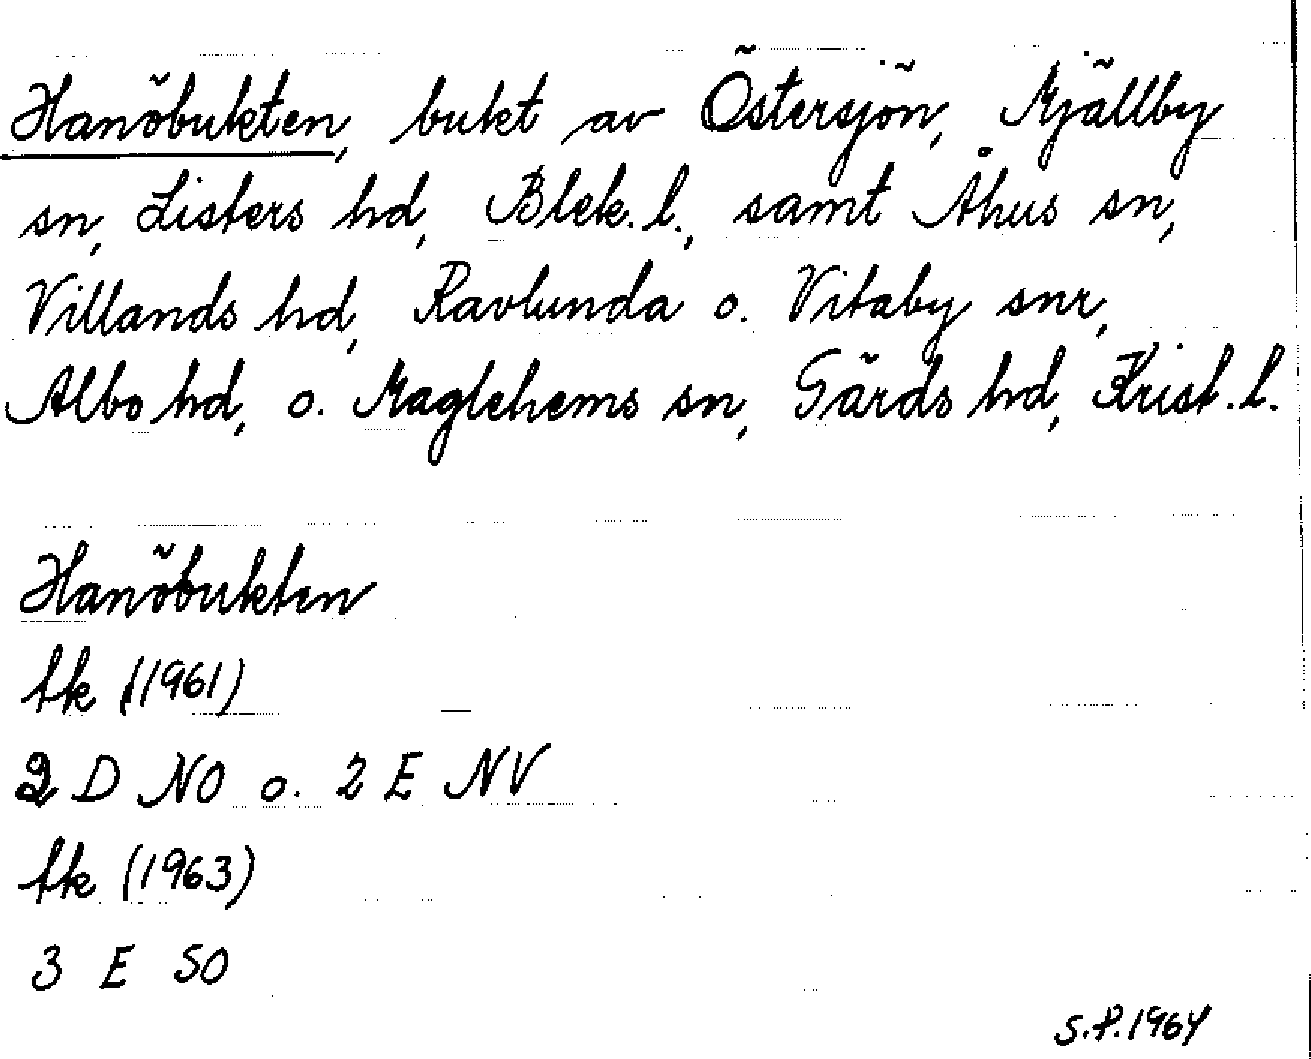 Hanöbukten, bukt av Östersjön, Mjällby
sn, Listers hd, Blek. l., samt Åhus sn,
Villands hd, Ravlunda o. Vitaby snr,
Albo hd, o. Maglehems sn, Gärds hd, Krist. l.
Hanöbukten
tk (1961)
2 D NO o. 2 E NV
tk (1963)
3 E SO
S.P. 1964